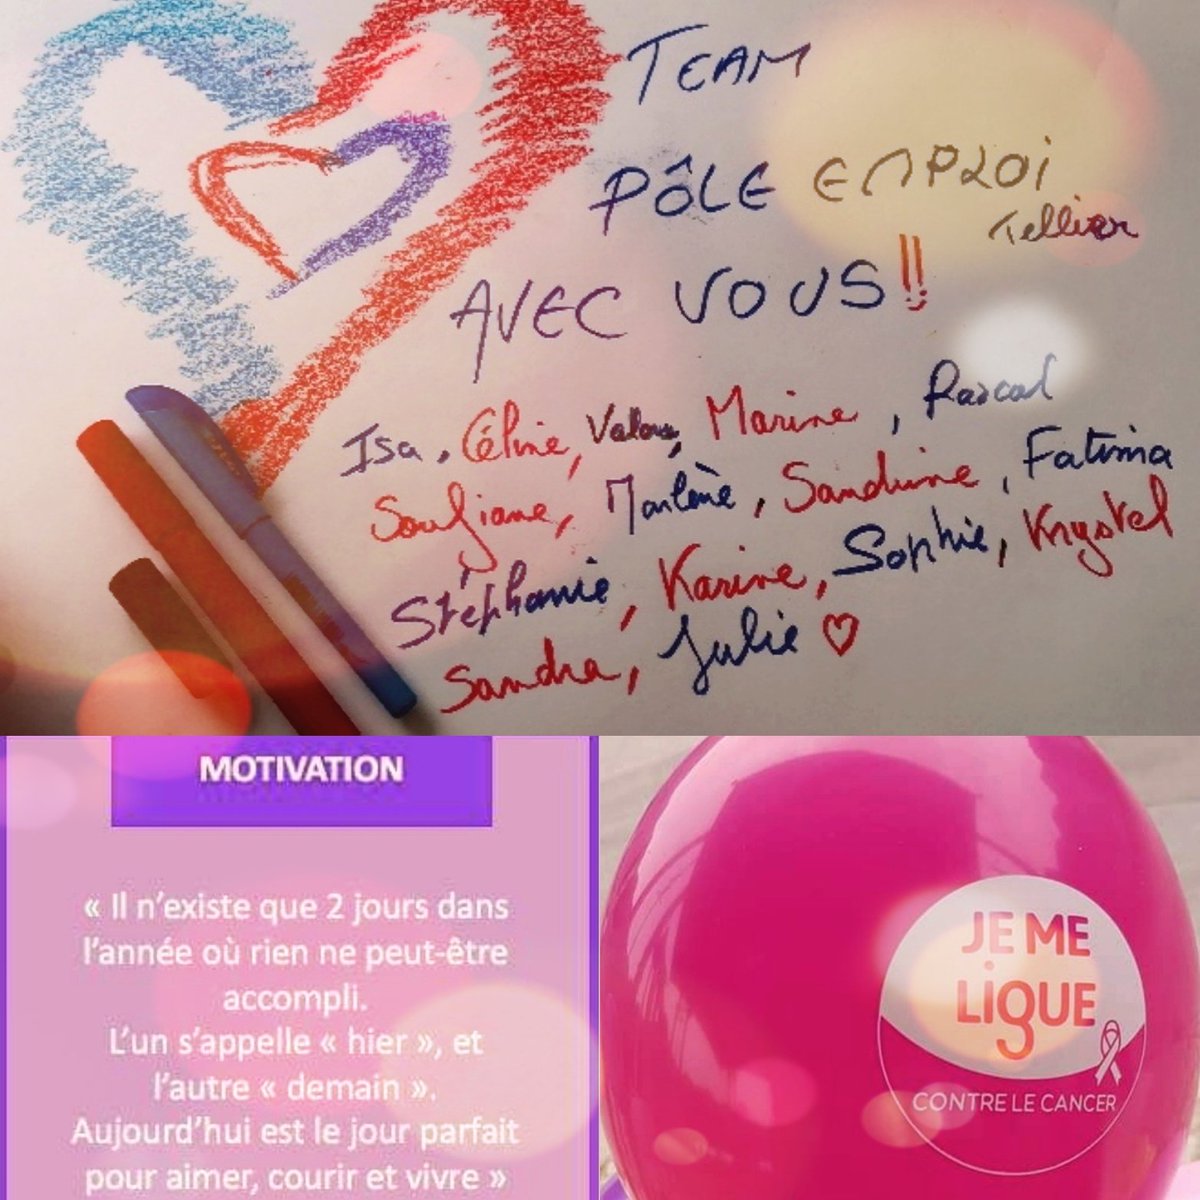 TEAM
PÔLE EMPLOI
Tellier
AVEC VOUS!!
Isa, Céline, Marine, Pascal
Soufiane, Marlène, Sandrine, Fatima
Stéphanie, Karine, Sophie, Krystel
Sandra, Julie ♡
MOTIVATION
« Il n'existe que 2 jours dans
l'année où rien ne peut-être
accompli.
L'un s'appelle « hier », et
l'autre « demain ».
Aujourd'hui est le jour parfait
pour aimer, courir et vivre »
JE ME
LIGUE
CONTRE LE CANCER